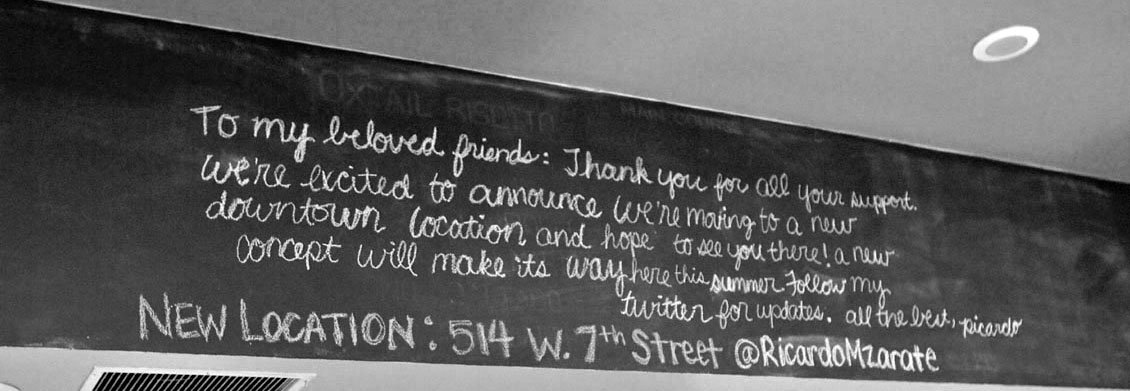 OXTAIL RISOTTO
To my beloved friends: Thank you for all your support.
We're excited to announce we're moving to a new
downtown location and hope to see you there! a new
concept will make its way here this summer. Follow my
twitter for updates. all the best, picardo
NEW LOCATION: 514 W. 7th Street @RicardoMzarate